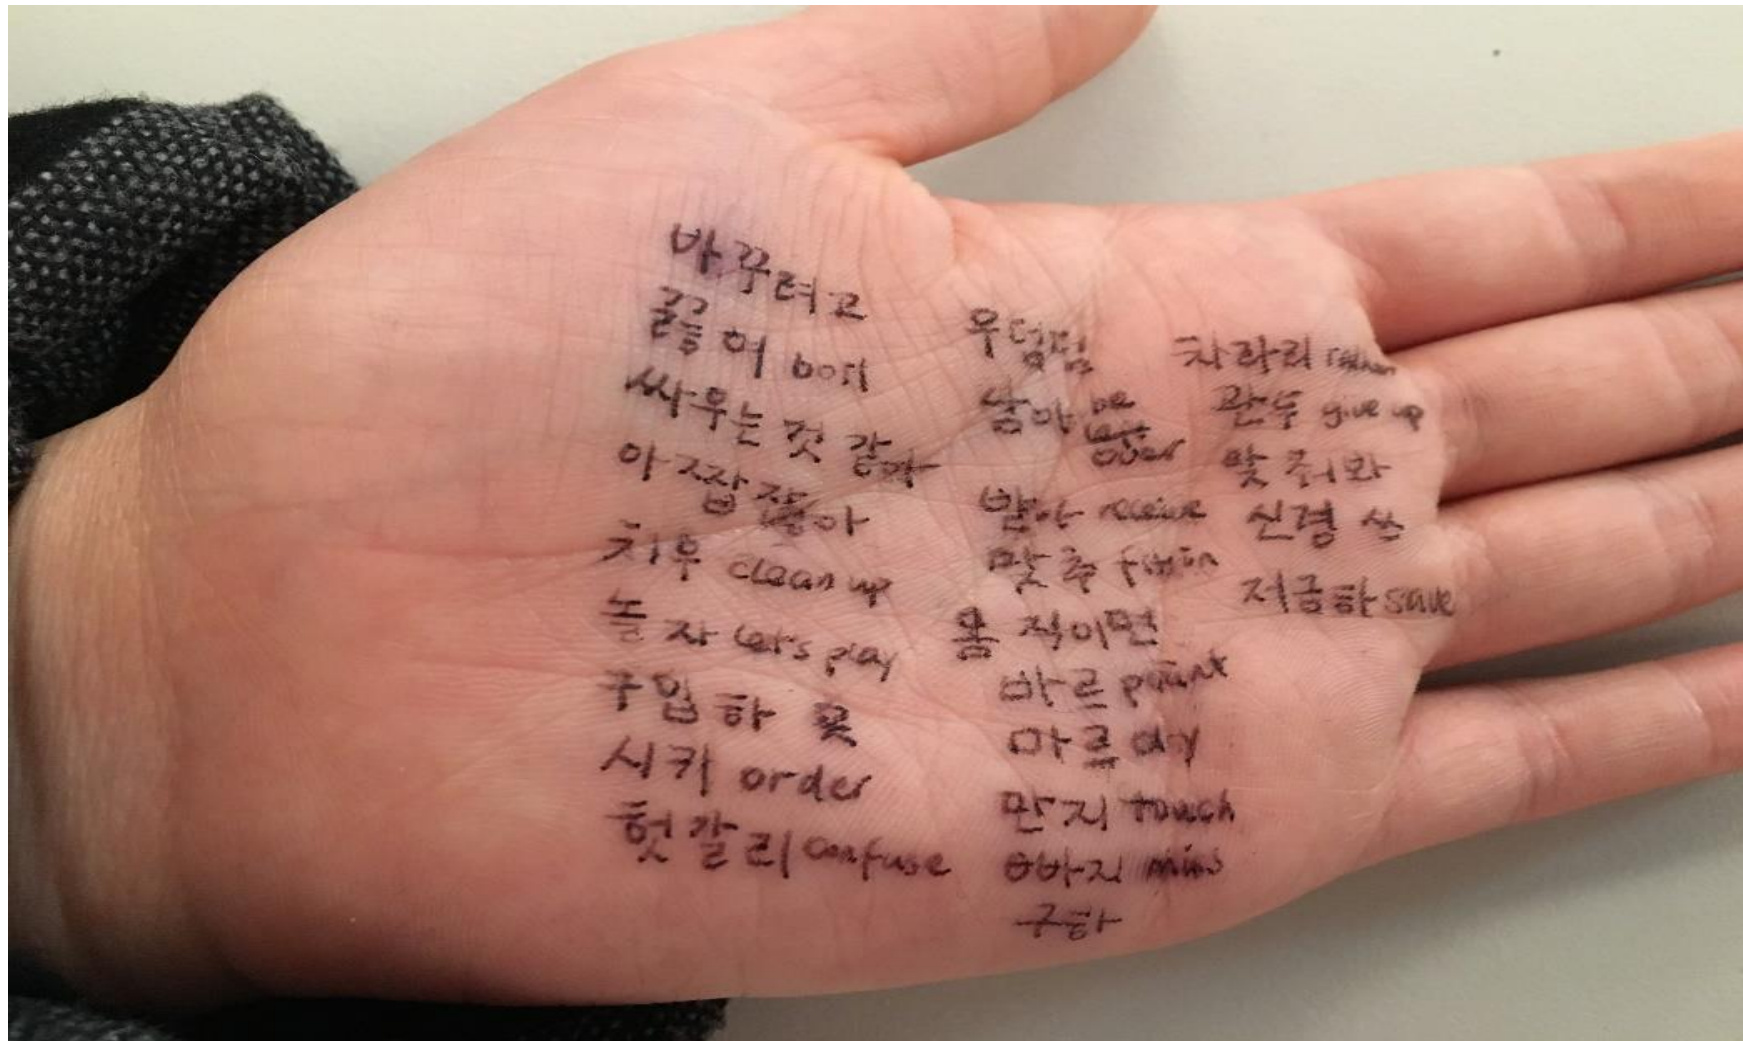 바꾸려고
끓어 boil
싸우는 것 같아
치우 clean up
놀자 let's play
구입하
시키 order
헛갈리 confuse
무덤덤
be over
receive
맞추 fit in
움직이면
바르 paint
마르 dry
만지 touch
빠지 miss
구하
차라리 rather
관두 give up
맞춰와
신경 쓰
저금하 save